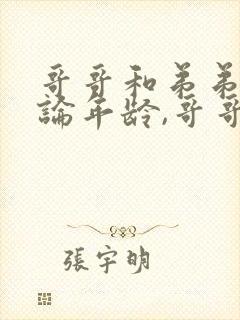 哥哥和弟弟
論年龄,哥哥
張宇明